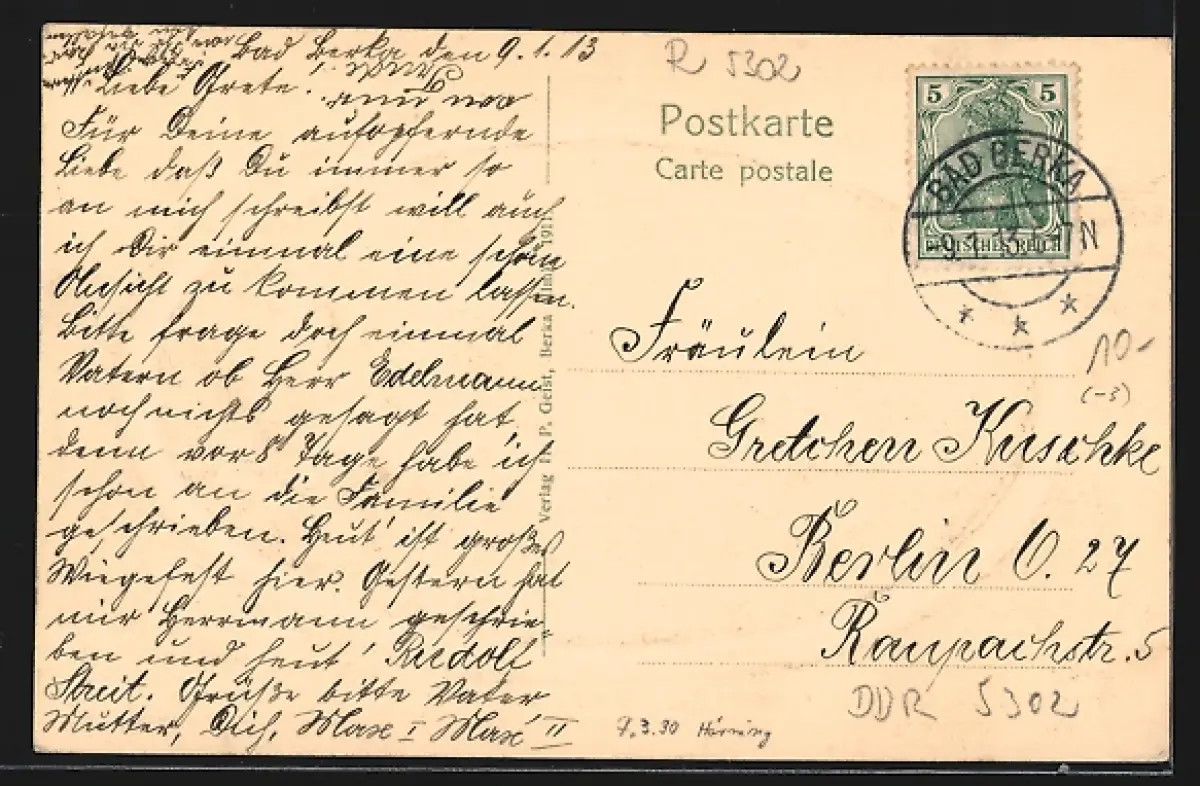 Bad Berka den 9.1.13
Liebe Grete!
Für Deine aufopfernde
Liebe daß Du immer so
an mich schreibst will auch
ich Dir einmal eine schöne
Ansicht zu kommen lassen.
Bitte frage doch einmal
Vatern ob Herr Edelmann
noch nichts gesagt hat,
denn vor 8 Tage habe ich
schon an die Familie
geschrieben. Heut' ist großes
Wiegefest hier. Gestern hat
mir Herrmann geschrie-
ben und heut' Rudolf
Streit. Grüße bitte Vater
Mutter, Dich, Max I Max II
von Eurer
Verlag P. Geist, Berka 1911
R 5302
Postkarte
Carte postale
5 5
DEUTSCHES REICH
BAD BERKA
9.1.13. 6-7N
* * *
10-
(-5)
Fräulein
Gretchen Kuschke
Berlin O. 27
Raupachstr. 5
DDR 5302
9.3.30